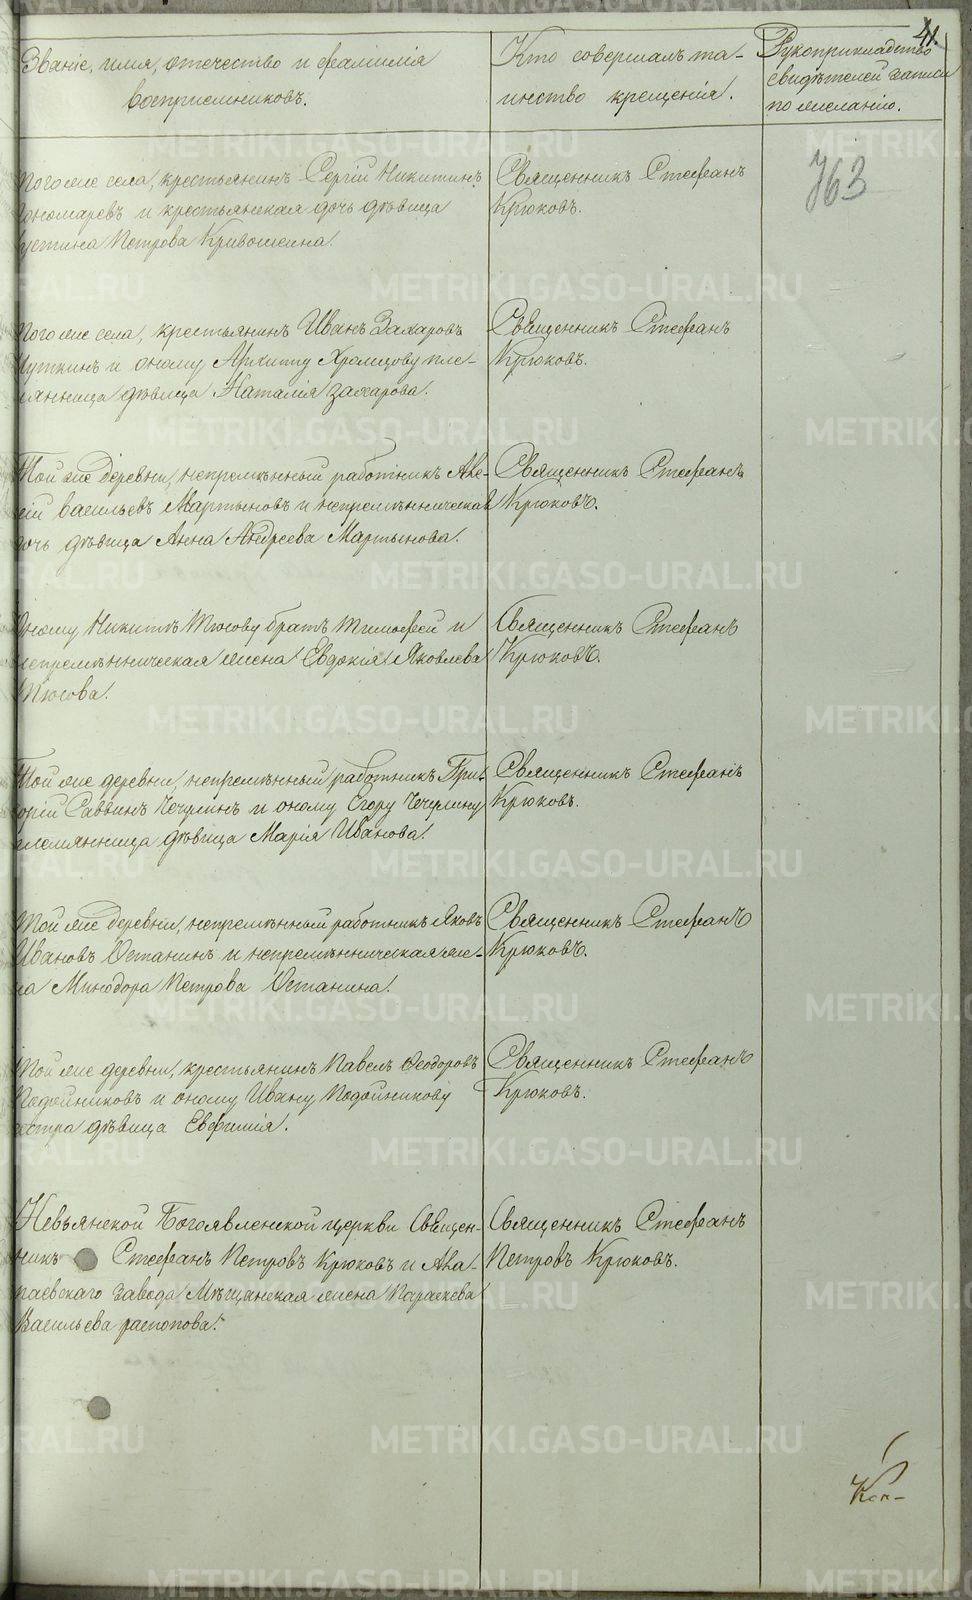 41.
Званіе, имя, отчество и фамилія
воспріемниковъ.
Кто совершалъ та-
инство крещенія.
Рукоприкладство
свидѣтелей записи
по желанію.
763
Того же села, крестьянинъ Сергій Никитинъ
Пономаревъ и крестьянская дочь дѣвица
Устина Петрова Кривошеина.
Священникъ Стефанъ
Крюковъ.
Того же села, крестьянинъ Иванъ Захаровъ
и оному Архиппу Храмцову пле-
мянница дѣвица Наталія Захарова.
Священникъ Стефанъ
Крюковъ.
Той же деревни, непремѣнный работникъ Але-
ксій Васильевъ Мартыновъ и непремѣнническая
дочь дѣвица Анна Андреева Мартынова.
Священникъ Стефанъ
Крюковъ.
Оному Никитѣ Тюсову братъ Тимофей и
непремѣнническая жена Евдокія Яковлева
Тюсова.
Священникъ Стефанъ
Крюковъ.
Той же деревни, непремѣнный работникъ Гри-
горій Саввинъ Чечулинъ и оному Егору Чечулину
племянница дѣвица Марія Иванова.
Священникъ Стефанъ
Крюковъ.
Той же деревни, непремѣнный работникъ Яковъ
Ивановъ Останинъ и непремѣнническая же-
на Минодора Петрова Останина.
Священникъ Стефанъ
Крюковъ.
Той же деревни, крестьянинъ Павелъ Ѳеодоровъ
Подойниковъ и оному Ивану Подойникову
сестра дѣвица Евфимія.
Священникъ Стефанъ
Крюковъ.
Невьянской Богоявленской церкви Священ-
никъ Стефанъ Петровъ Крюковъ и Ала-
паевскаго завода Мѣщанская жена Параскева
Васильева Распопова.
Священникъ Стефанъ
Петровъ Крюковъ.
METRIKI.GASO-URAL.RU